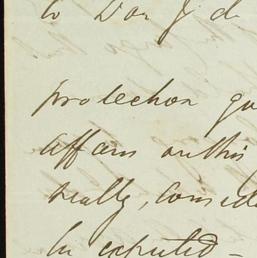 to Don J. d
protection
affairs on this
really, consid
be expected -